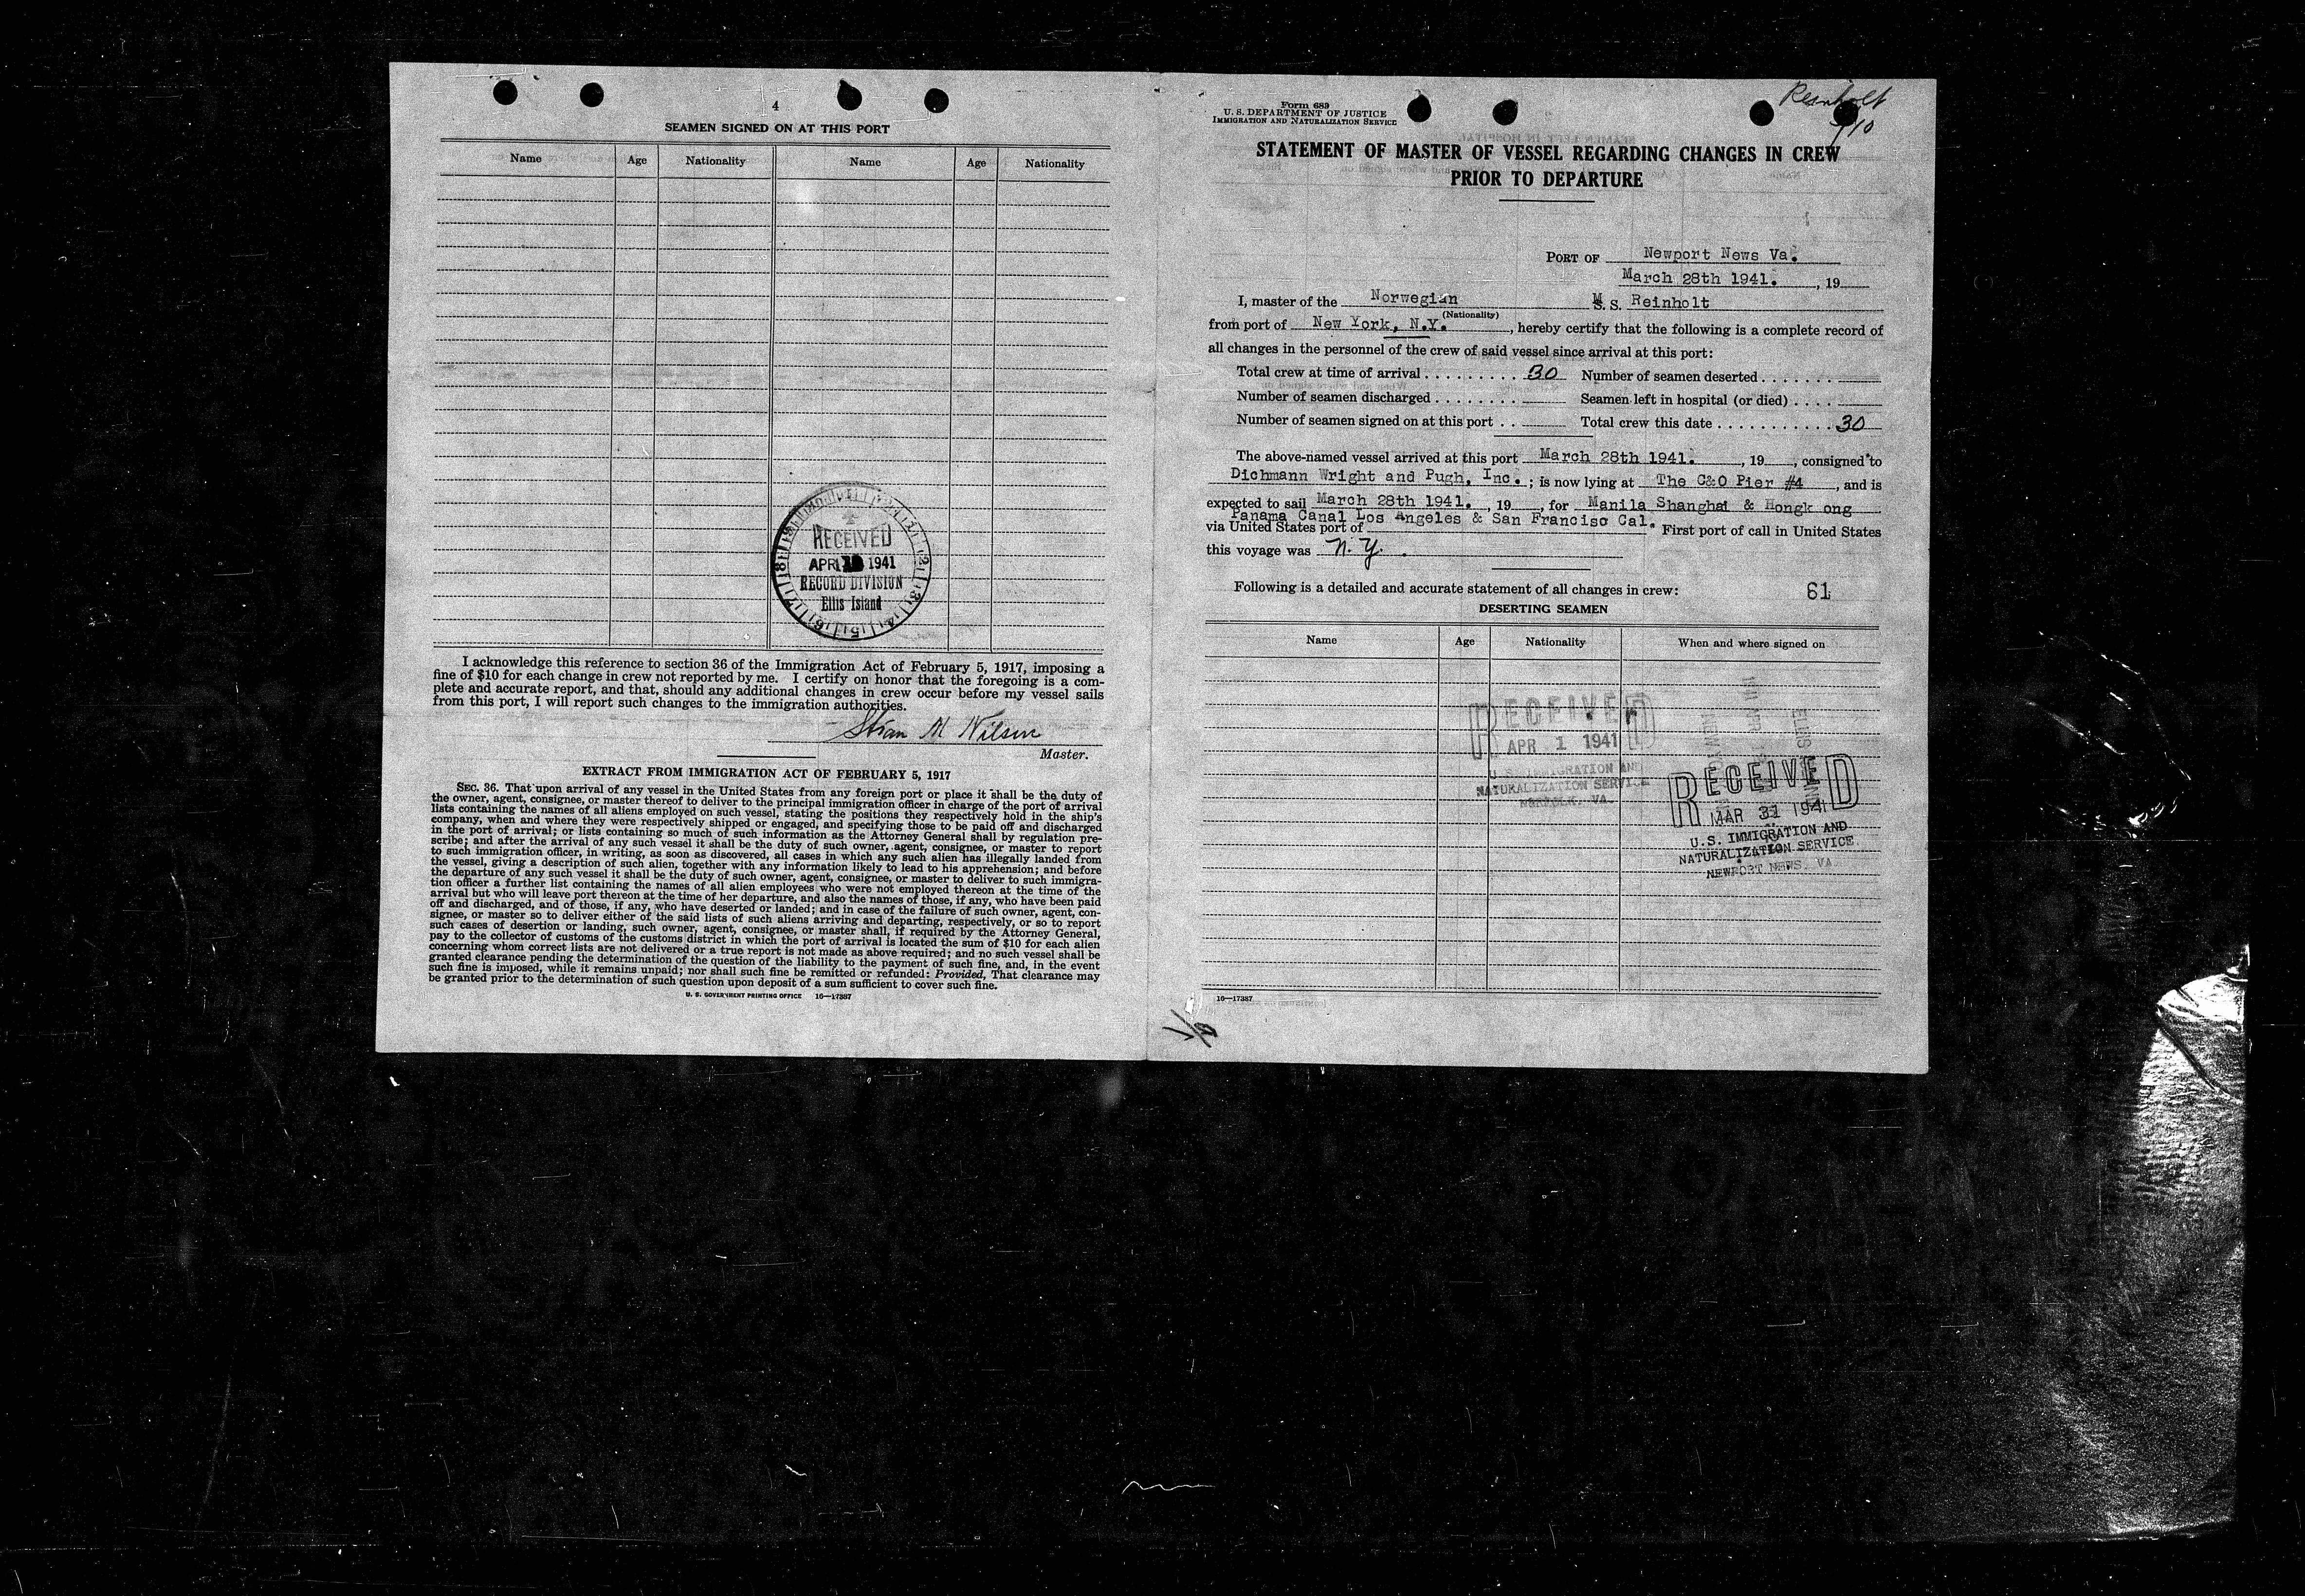 4
SEAMEN SIGNED ON AT THIS PORT
Name Age Nationality Name Age Nationality
RECEIVED
APR 1941
RECORD DIVISION
Ellis Island
I acknowledge this reference to section 36 of the Immigration Act of February 5, 1917, imposing a
fine of $10 for each change in crew not reported by me. I certify on honor that the foregoing is a com-
plete and accurate report, and that, should any additional changes in crew occur before my vessel sails
from this port, I will report such changes to the immigration authorities.
M
Master.
EXTRACT FROM IMMIGRATION ACT OF FEBRUARY 5, 1917
SEC. 36. That upon arrival of any vessel in the United States from any foreign port or place it shall be the duty of
the owner, agent, consignee, or master thereof to deliver to the principal immigration officer in charge of the port of arrival
lists containing the names of all aliens employed on such vessel, stating the positions they respectively hold in the ship's
company, when and where they were respectively shipped or engaged, and specifying those to be paid off and discharged
in the port of arrival; or lists containing so much of such information as the Attorney General shall by regulation pre-
scribe; and after the arrival of any such vessel it shall be the duty of such owner, agent, consignee, or master to report
to such immigration officer, in writing, as soon as discovered, all cases in which any such alien has illegally landed from
the vessel, giving a description of such alien, together with any information likely to lead to his apprehension; and before
the departure of any such vessel it shall be the duty of such owner, agent, consignee, or master to deliver to such immigra-
tion officer a further list containing the names of all alien employees who were not employed thereon at the time of the
arrival but who will leave port thereon at the time of her departure, and also the names of those, if any, who have been paid
off and discharged, and of those, if any, who have deserted or landed; and in case of the failure of such owner, agent, con-
signee, or master so to deliver either of the said lists of such aliens arriving and departing, respectively, or so to report
such cases of desertion or landing, such owner, agent, consignee, or master shall, if required by the Attorney General,
pay to the collector of customs of the customs district in which the port of arrival is located the sum of $10 for each alien
concerning whom correct lists are not delivered or a true report is not made as above required; and no such vessel shall be
granted clearance pending the determination of the question of the liability to the payment of such fine, and, in the event
such fine is imposed, while it remains unpaid; nor shall such fine be remitted or refunded: Provided, That clearance may
be granted prior to the determination of such question upon deposit of a sum sufficient to cover such fine.
U. S. GOVERNMENT PRINTING OFFICE 16—17387
Reinholt
Form 689
U. S. DEPARTMENT OF JUSTICE
IMMIGRATION AND NATURALIZATION SERVICE
STATEMENT OF MASTER OF VESSEL REGARDING CHANGES IN CREW
PRIOR TO DEPARTURE
PORT OF Newport News Va.
March 28th 1941. , 19
I, master of the Norwegian M. S. Reinholt
(Nationality)
from port of New York, N.Y. , hereby certify that the following is a complete record of
all changes in the personnel of the crew of said vessel since arrival at this port:
Total crew at time of arrival . . . . . . . . . 30 Number of seamen deserted . . . . . . .
Number of seamen discharged . . . . . . . . Seamen left in hospital (or died) . . . .
Number of seamen signed on at this port . . Total crew this date . . . . . . . . . . . 30
The above-named vessel arrived at this port March 28th 1941. , 19 , consigned to
Dichmann Wright and Pugh, Inc. ; is now lying at The C&O Pier #4 , and is
expected to sail March 28th 1941. , 19 , for Manila Shanghai & Hongk ong
Panama Canal Los Angeles & San Francisc Cal.
via United States port of First port of call in United States
this voyage was N.Y.
Following is a detailed and accurate statement of all changes in crew: 61
DESERTING SEAMEN
Name Age Nationality When and where signed on
RECEIVED
APR 1 1941
U. S. IMMIGRATION AND
NATURALIZATION SERVICE
NORFOLK, VA.
RECEIVED
MAR 31 1941
U.S. IMMIGRATION AND
NATURALIZATION SERVICE
NEWPORT NEWS. VA.
16—17387